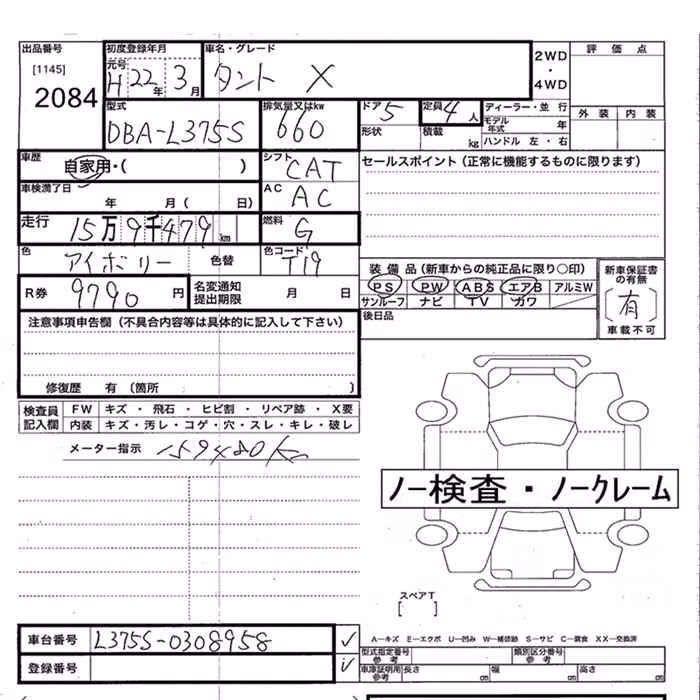 出品番号 初度登録年月 車名・グレード 2WD・4WD 評価点
[1145] 元号 H22年3月 タント X
2084
型式 排気量又はkw ドア 5 定員 4人 ディーラー・並行 外装 内装
DBA-L375S 660 形状 積載 kg モデル年式 年
ハンドル 左・右
車歴 自家用・( ) シフト CAT セールスポイント(正常に機能するものに限ります)
車検満了日 年 月( 日) AC AC
走行 15万9千479km 燃料 G
色 アイボリー 色替 色コード T19
装備品(新車からの純正品に限り○印) 新車保証書の有無
R券 9790円 名変通知提出期限 月 日 PS PW ABS エアB アルミW [有]
サンルーフ ナビ TV カワ 車載不可
注意事項申告欄(不具合内容等は具体的に記入して下さい) 後日品
修復歴 有(箇所 )
検査員記入欄 FW キズ・飛石・ヒビ割・リペア跡・X要
内装 キズ・汚レ・コゲ・穴・スレ・キレ・破レ
メーター指示 159480km
ノー検査・ノークレーム
スペアT
[ ]
車台番号 L375S-0308958 ✓ A―キズ E―エクボ U―凹み W―補修跡 S―サビ C―腐食 XX―交換済
登録番号 ✓ 型式指定番号 参考 類別区分番号 参考
車庫証明用参考 長さ cm 幅 cm 高さ cm